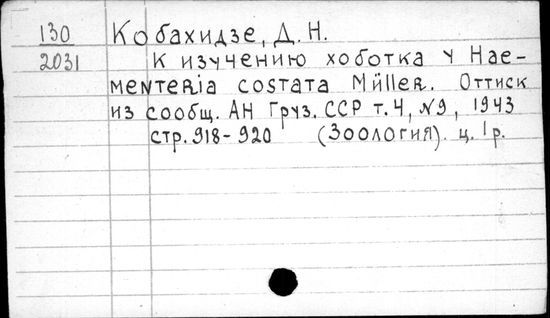 130 Кобахидзе, Д. Н.
2031 К изучению хоботка у Hae-
menteria costata Müller. Оттиск
из сообщ. АН Груз. ССР т. 4, №9, 1943
стр. 918-920 (Зоология). ц. 1р.